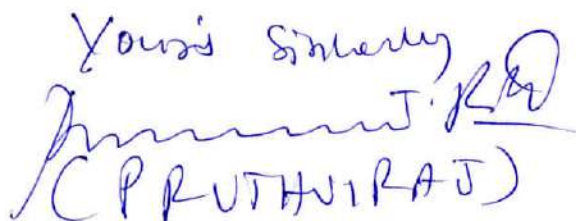 Your's Sincerely
(PRUTHVIRAJ)